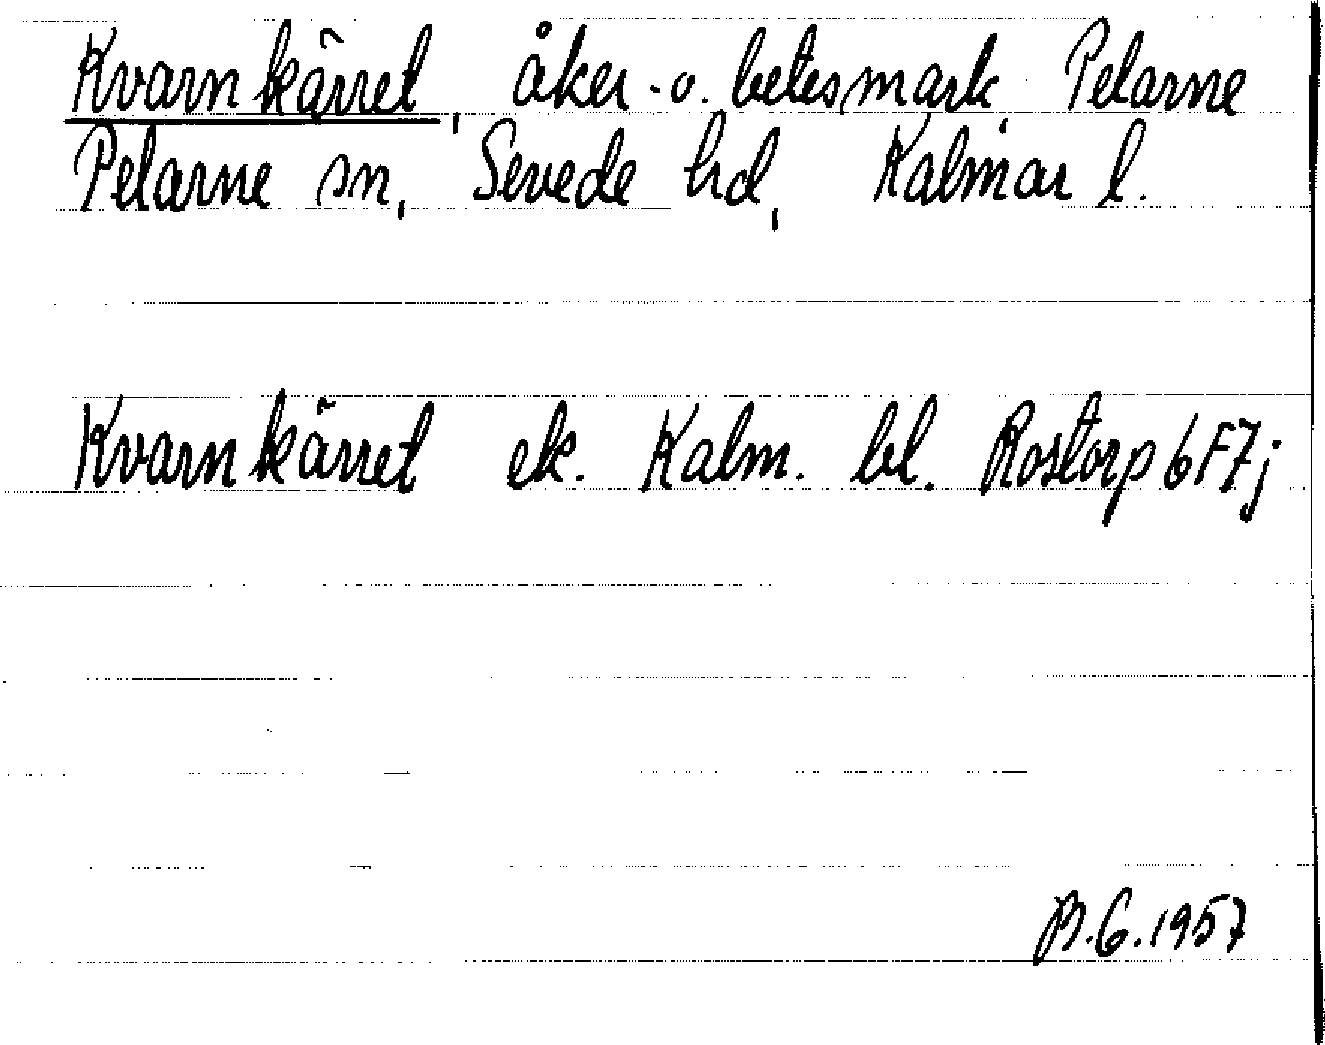 Kvarnkärret, åker- o. betesmark Pelarne
Pelarne sn, Sevede hd, Kalmar l.
Kvarnkärret ek. Kalm. bl. Rostorp 6F7j
B.G. 1957